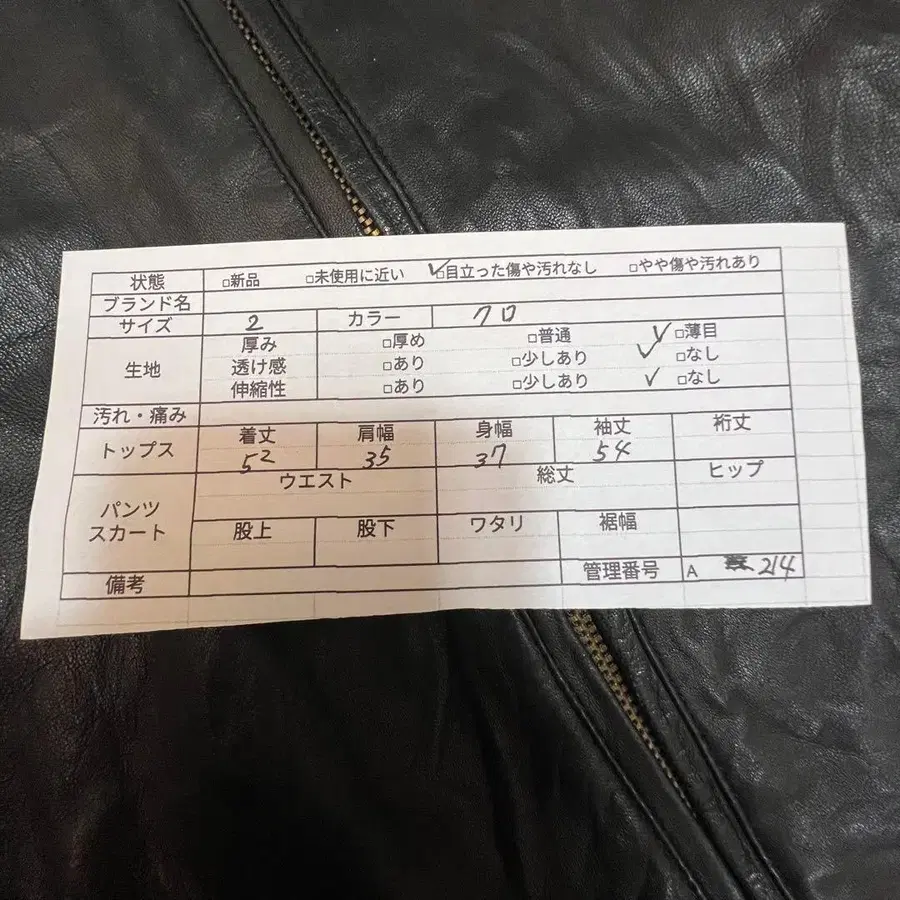 状態 □新品 □未使用に近い ✓□目立った傷や汚れなし □やや傷や汚れあり
ブランド名
サイズ 2 カラー クロ
生地 厚み □厚め □普通 ✓□薄目
透け感 □あり □少しあり ✓□なし
伸縮性 □あり □少しあり ✓□なし
汚れ・痛み
トップス 着丈 肩幅 身幅 袖丈 裄丈
52 35 37 54
パンツ スカート ウエスト 総丈 ヒップ
股上 股下 ワタリ 裾幅
備考 管理番号 A 214